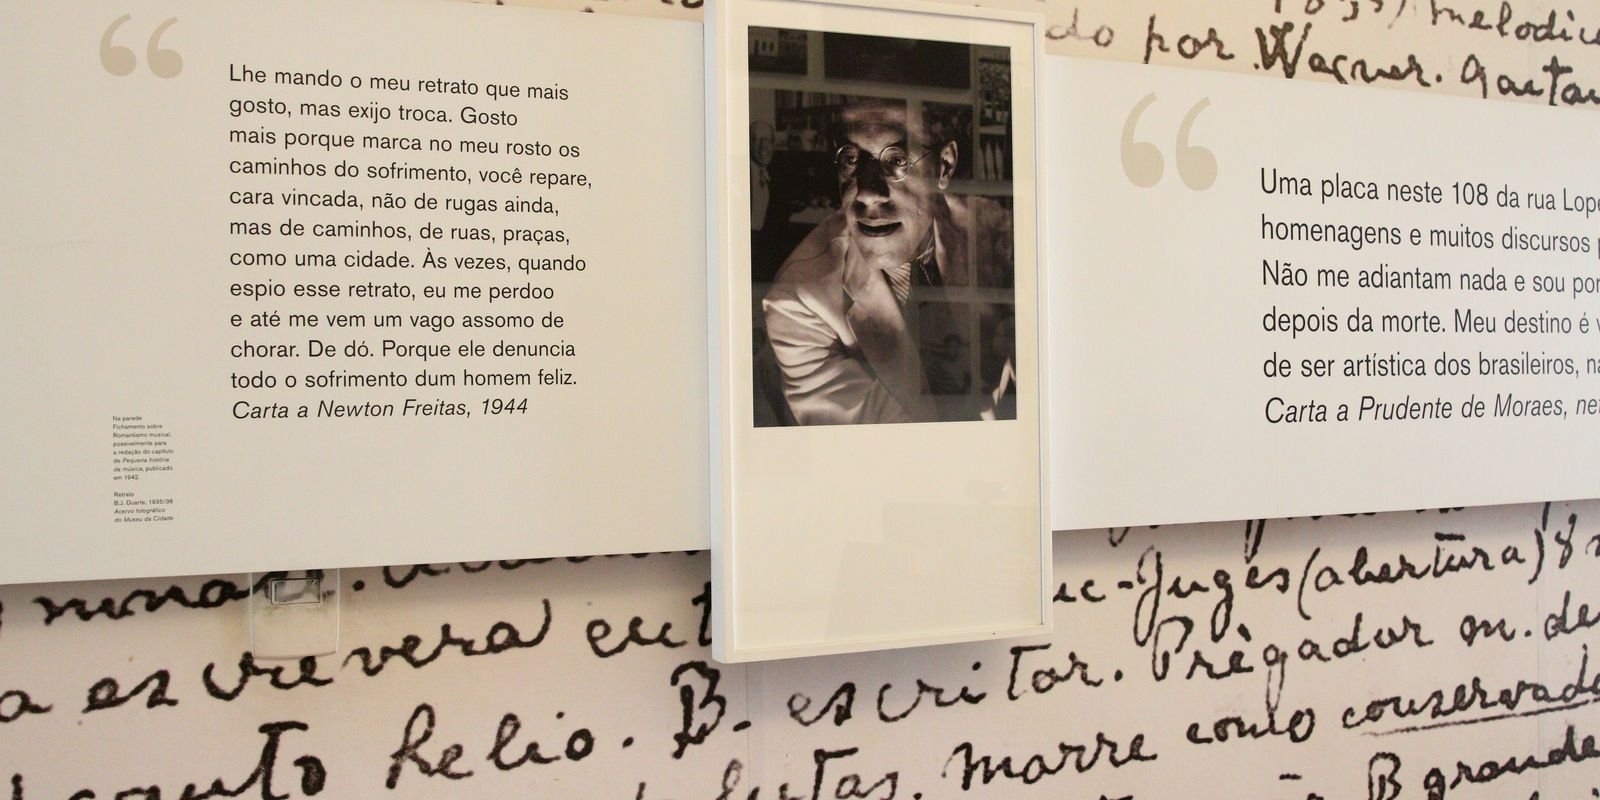 melodic
do por Wagner. Gaetan
“
Lhe mando o meu retrato que mais
gosto, mas exijo troca. Gosto
mais porque marca no meu rosto os
caminhos do sofrimento, você repare,
cara vincada, não de rugas ainda,
mas de caminhos, de ruas, praças,
como uma cidade. Às vezes, quando
espio esse retrato, eu me perdoo
e até me vem um vago assomo de
chorar. De dó. Porque ele denuncia
todo o sofrimento dum homem feliz.
Carta a Newton Freitas, 1944
Na parede
Fichamento sobre
Romantismo musical,
possivelmente para
a redação do capítulo
de Pequena história
da música, publicado
em 1942.
Retrato
B.J. Duarte, 1935/36
Acervo fotográfico
do Museu da Cidade
“
Uma placa neste 108 da rua Lope
homenagens e muitos discursos p
Não me adiantam nada e sou por
depois da morte. Meu destino é v
de ser artística dos brasileiros, na
Carta a Prudente de Moraes, net
uc-Juges (abertura) 8
a escrevera
B. escritor. Prègador m. de
helio.
Marre como conservado
B grande